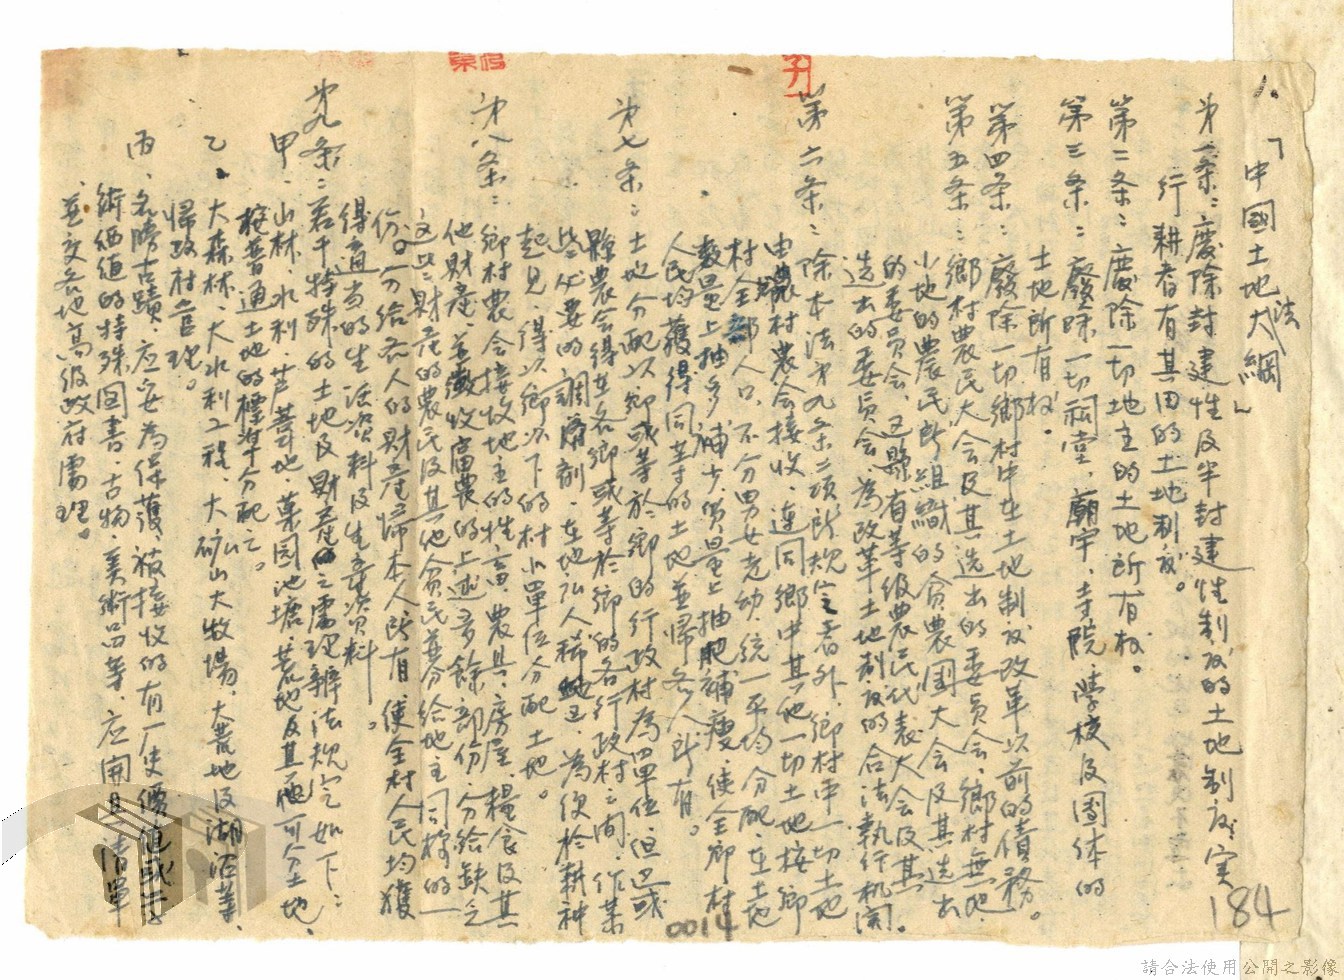 1.「中國土地法大綱」
第一条：廢除封建性及半封建性制度的土地制度、实
行耕者有其田的土地制度。
第二条：廢除一切地主的土地所有权。
第三条：廢除一切祠堂、廟宇、寺院、學校及團体的
土地所有权。
第四条：廢除一切鄉村中在土地制度改革以前的債務。
第五条：鄉村農民大会及其选出的委員会、鄉村無地
少地的農民所組織的貧農團大会及其选出
的委員会、区縣省等级農民代表大会及其
选出的委員会、為改革土地制度的合法执行机関。
第六条：除本法第九条二項所规定者外、鄉村中一切土地
由鄉村農会接收、連同鄉中其他一切土地、按鄉
村全部人口、不分男女老幼、統一平均分配、在土地
数量上抽多補少、质量上抽肥補瘦、使全鄉村
人民均獲得同等的土地、並歸各人所有。
第七条：土地分配以鄉或等於鄉的行政村為單位、但区或
縣農会得在各鄉或等於鄉的各行政村之间、作某
些必要的調剂、在地広人稀地区、為便於耕种
起見、得以鄉以下的村小單位分配土地。
第八条：鄉村農会接收地主的牲畜、農具、房屋、糧食及其
他財產、並徵收富農的上述多餘部份、分给缺乏
这些財產的農民及其他貧民、並分给地主同样的一
份。分给各人的財產归本人所有、使全村人民均獲
得適当的生活资料及生產资料。
第九条：若干特殊的土地及財產之處理辦法规定如下：
甲、山林、水利、芦葦地、菓园池塘、荒地及其他可分土地、
按普通土地的標準分配之。
乙、大森林、大水利工程、大矿山大牧場、大荒地及湖沼等、
歸政府管理。
丙、名勝古蹟、应妥為保護、被接收的有厂史價值或学
術價值的特殊図書、古物、美術品等、应開具清單
並交各地高级政府處理。
184
0014
請合法使用公開之影像